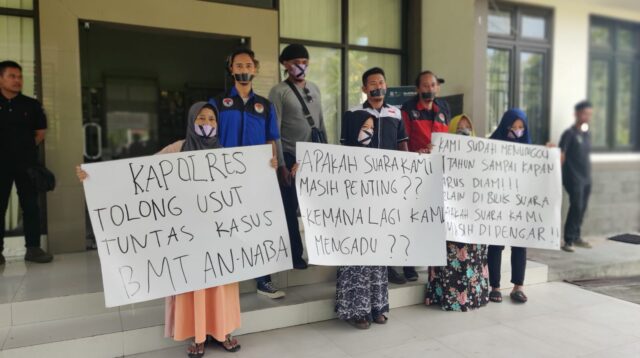 KAPOLRES
TOLONG USUT
TUNTAS KASUS
BMT AN-NABA
APAKAH SUARA KAMI
MASIH PENTING??
KEMANA LAGI KAMI
MENGADU??
KAMI SUDAH MENUNGGU
TAHUN SAMPAI KAPAN
ARUS DIAM!!!
LAIN DI BLIK SUARA
APAKAH SUARA KAMI
MASIH DI DENGAR.!!